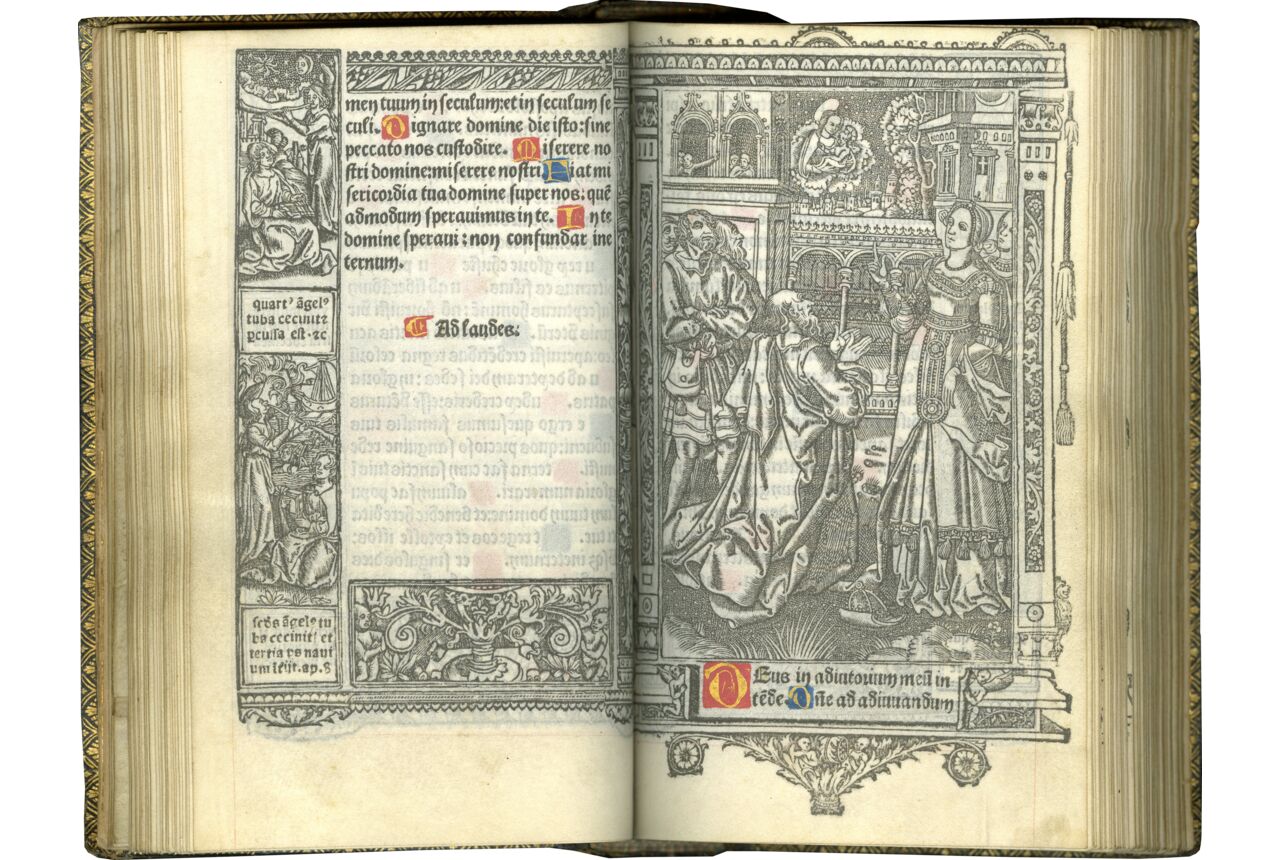 men tuum in seculum: et in seculum se
culi. Dignare domine die isto: sine
peccato nos custodire. Miserere no
stri domine: miserere nostri. Fiat mi
sericordia tua domine super nos: quē
admodum sperauimus in te. In te
domine speraui: non confundar ine
ternum.
Ad laudes.
quartꝰ āgelꝰ
tuba cecinit ⁊
ꝑcussa est. ⁊c
scd's āgelꝰ tu
ba cecinit: et
tertia ꝑs naui
um īteijt. ap. 8
DEus in adiutorium meū in
tēde. Dñe ad adiuuandum